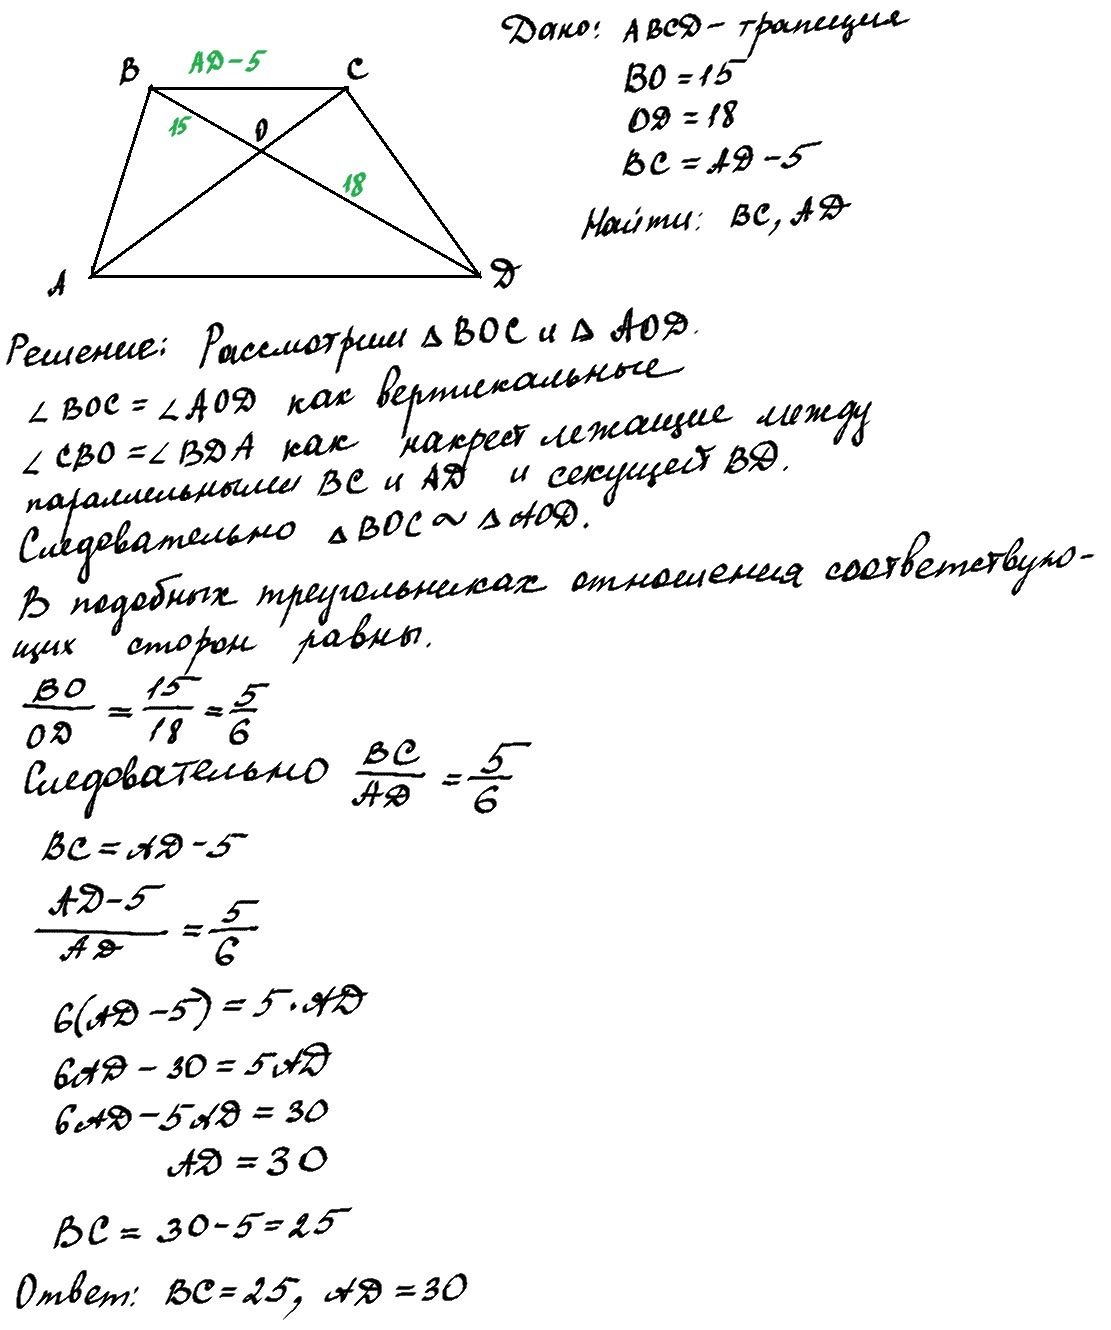 Дано: ABCD - трапеция
BO = 15
OD = 18
BC = AD - 5
Найти: BC, AD
B AD - 5 C
15 O
18
A D
Решение: Рассмотрим △ BOC и △ AOD.
∠ BOC = ∠ AOD как вертикальные
∠ CBO = ∠ BDA как накрест лежащие между
параллельными BC и AD и секущей BD.
Следовательно △ BOC ~ △ AOD.
В подобных треугольниках отношения соответствую-
щих сторон равны.
BO/OD = 15/18 = 5/6
Следовательно BC/AD = 5/6
BC = AD - 5
AD - 5/AD = 5/6
6(AD - 5) = 5 · AD
6AD - 30 = 5AD
6AD - 5AD = 30
AD = 30
BC = 30 - 5 = 25
Ответ: BC = 25, AD = 30